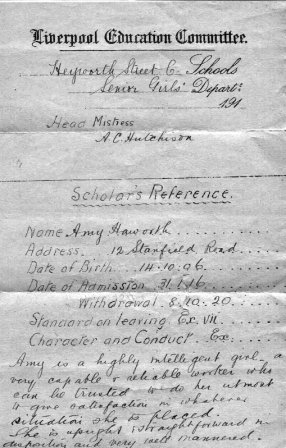 Liverpool Education Committee.
Heyworth Street C. Schools
Senior Girls' Depart:
191
Head Mistress
A.C. Hutchison
Scholar's Reference.
Name Amy Haworth
Address. 12 Stanfield Road
Date of Birth 14.10.06
Date of Admission 31.1.16
Withdrawal 8.10.20.
Standard on leaving Ex. VII
Character and Conduct Ex.
Amy is a highly intelligent girl, a
very capable & reliable worker who
can be trusted to do her utmost
to give satisfaction in whatever
situation she is placed.
She is upright, straightforward in
disposition and very well mannered.